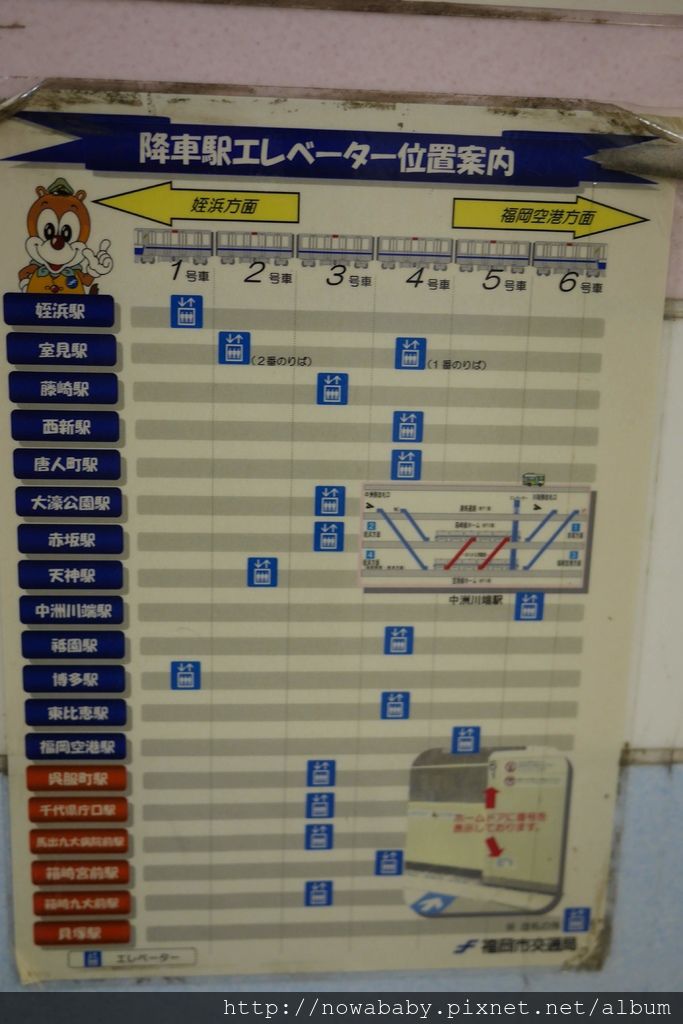 降車駅エレベーター位置案内
姪浜方面
福岡空港方面
1号車 2号車 3号車 4号車 5号車 6号車
姪浜駅
室見駅
(2番のりば)
(1番のりば)
藤崎駅
西新駅
唐人町駅
大濠公園駅
赤坂駅
天神駅
中洲川端駅
中洲川端駅
祇園駅
博多駅
東比恵駅
福岡空港駅
呉服町駅
千代県庁口駅
馬出九大病院前駅
箱崎宮前駅
箱崎九大前駅
貝塚駅
ホームドアに番号を
表示しております。
エレベーター
福岡市交通局
http://nowababy.pixnet.net/album